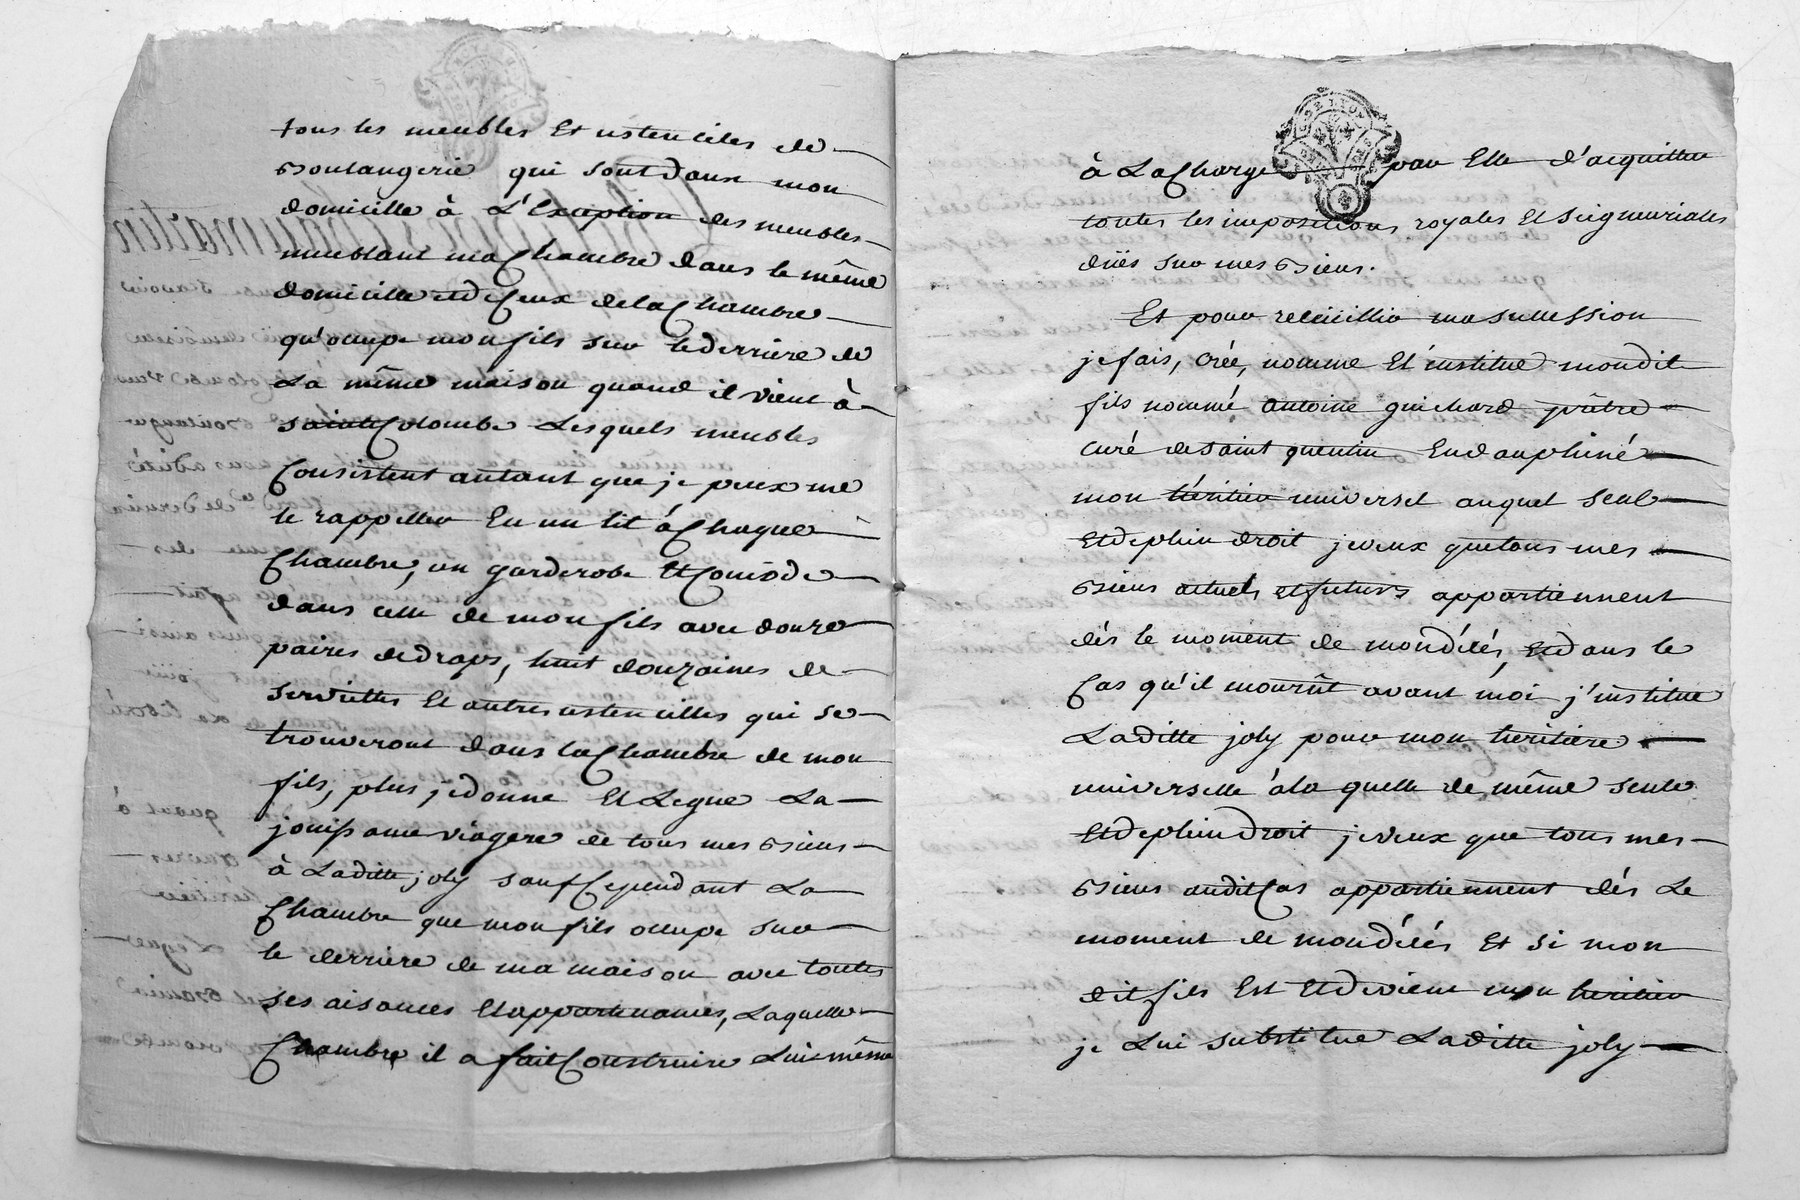 tous les meubles Et ustenciles de
Boulangerie qui sont dans mon
domicille à L'Exception des meubles
meublant ma Chambre dans le même
domicille et de Ceux de la Chambre
qu'occupe mon fils sur le derriere de
La même maison quand il vient à
sainte Colombe Lesquels meubles
Consistent autant que je peux me
le rappeller En un lit à Chaque
Chambre, un garderobe Et Comode
dans celle de mon fils avec douze
paires de draps, huit douzaines de
serviettes Et autres ustencilles qui se
trouveront dans la Chambre de mon
fils, plus je donne Et Legue La
jouissance viagere de tous mes Biens
à Laditte joly sauf Cependant La
Chambre que mon fils occupe sur
le derriere de ma maison avec toutes
ses aisances Et appartenances, Laquelle
Chambre il a fait Construire Lui même
à La Charge par Elle d'acquitter
toutes les impositions royales Et Seigneuriales
dües sur mes Biens.
Et pour recüeillir ma succession
je fais, crée, nomme Et institue mondit
fils nommé antoine guichard prêtre
curé de saint quentin En dauphiné
mon héritier universel auquel seul
Et de plein droit je veux que tous mes
Biens actuels et futurs appartiennent
dès le moment de mon décés, Et dans le
Cas qu'il mourût avant moi j'institue
Laditte joly pour mon heritiere
universelle à la quelle de même seule
Et de plein droit je veux que tous mes
Biens audit Cas appartiennent dès Le
moment de mon décés Et si mon
dit fils Est Et devient mon heritier
je Lui substitue Laditte joly